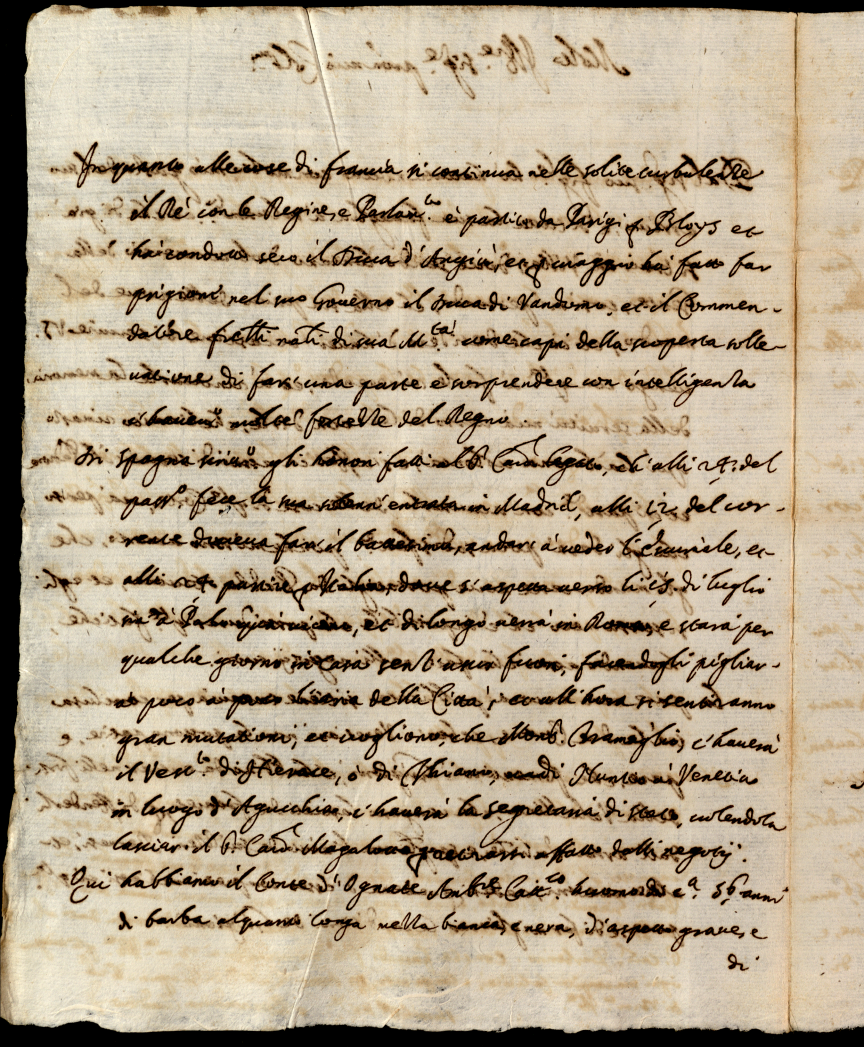 In quanto alle cose di francia si continua nelle solite turbulenze
il Rè con le Regine, e Parlam.to è partito da Parigi p Bloys et
ha condotto seco il Duca d'Angiù, et p uiaggio ha fatto far
prigioni nel suo Gouerno il Duca di Vandomo, et il Commen-
datore frelli nãli di sua M.tà come capi della scoperta solle-
uatione di farsi una parte e sorprendere con intelligenza
molte fortezze del Regno
Di spagna gli honori fatti al S. Card. legato, ch'alli 24. del
pass.o fece la sua solenne entrata in Madrid, alli 12 del cor-
rente doueua fare il battesimo, andar à ueder l'Escuriale, et
alli 24 partire p Italia, doue s'aspetta uerso li 15 di luglio
à Palo, et di longo uerrà in Roma, e starà per
qualche giorno in casa senz' uscir fuori, facendogli pigliar-
n poco della Città, et all' hora si sentiranno
gran mutationi, et uogliono, che Mons. c'hauerà
il Vesc.to di, ò di Chiari, uadi Nuntio à Venetia
in luogo d'Agucchia, c'hauerà la segretaria di stato, uolendola
lasciar il S. Card Magalotti p ritirarsi affatto dalli negotij.
Qui habbiamo il Conte d'Ognate Amb.re Catt.co huomo di c.a 56 anni
di barba alquanto longa nella bianca, e nera, d'aspetto graue, e
di